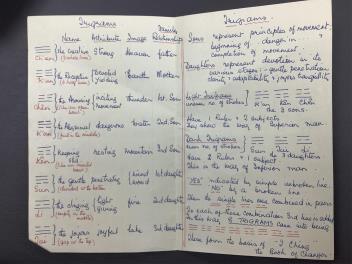 Trigrams
Name Attribute Image Family Relationship
the Creative Strong Heaven father
Ch'ien
the Receptive Devoted Yielding Earth Mother
K'un
the Arousing inciting movement thunder 1st. Son
Chên
the Abysmal dangerous water 2nd. Son
K'an
Keeping Still resting mountain 3rd. Son
Kên
the gentle penetrating wind wood 1st daughter
Sun
the clinging light giving fire 2nd daughter
Li
the joyous joyful lake 3rd daughter
Tui
Trigrams.
Sons represent principles of movement,
beginning of danger in
completion of movement.
Daughters represent devotion in its
various stages: gentle penetration
clarity & adaptability, & joyous tranquility.
Light Trigrams K'an Kên Chên
uneven no of strokes the 3 sons.
Have 1 Ruler & 2 Subjects
They show the way of Superior man.
Dark Trigrams Sun Tui Li
even no of strokes the 3 daughters
Have 2 Rulers & 1 Subject
This is the way of Inferior man
"YES" indicated by simple unbroken line.
"NO" by a broken line
Then the single lines were combined in pairs
To each of these combinations 3rd line is added
In this way 8 TRIGRAMS came into being
These form the basis of "I Ching
The Book of Changes